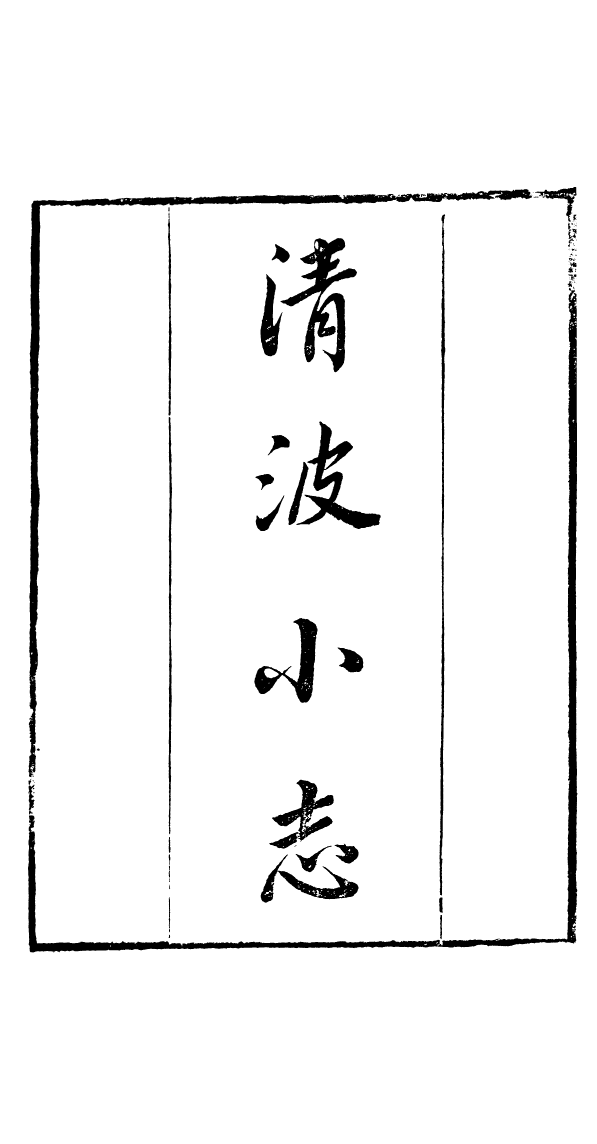 清波小志